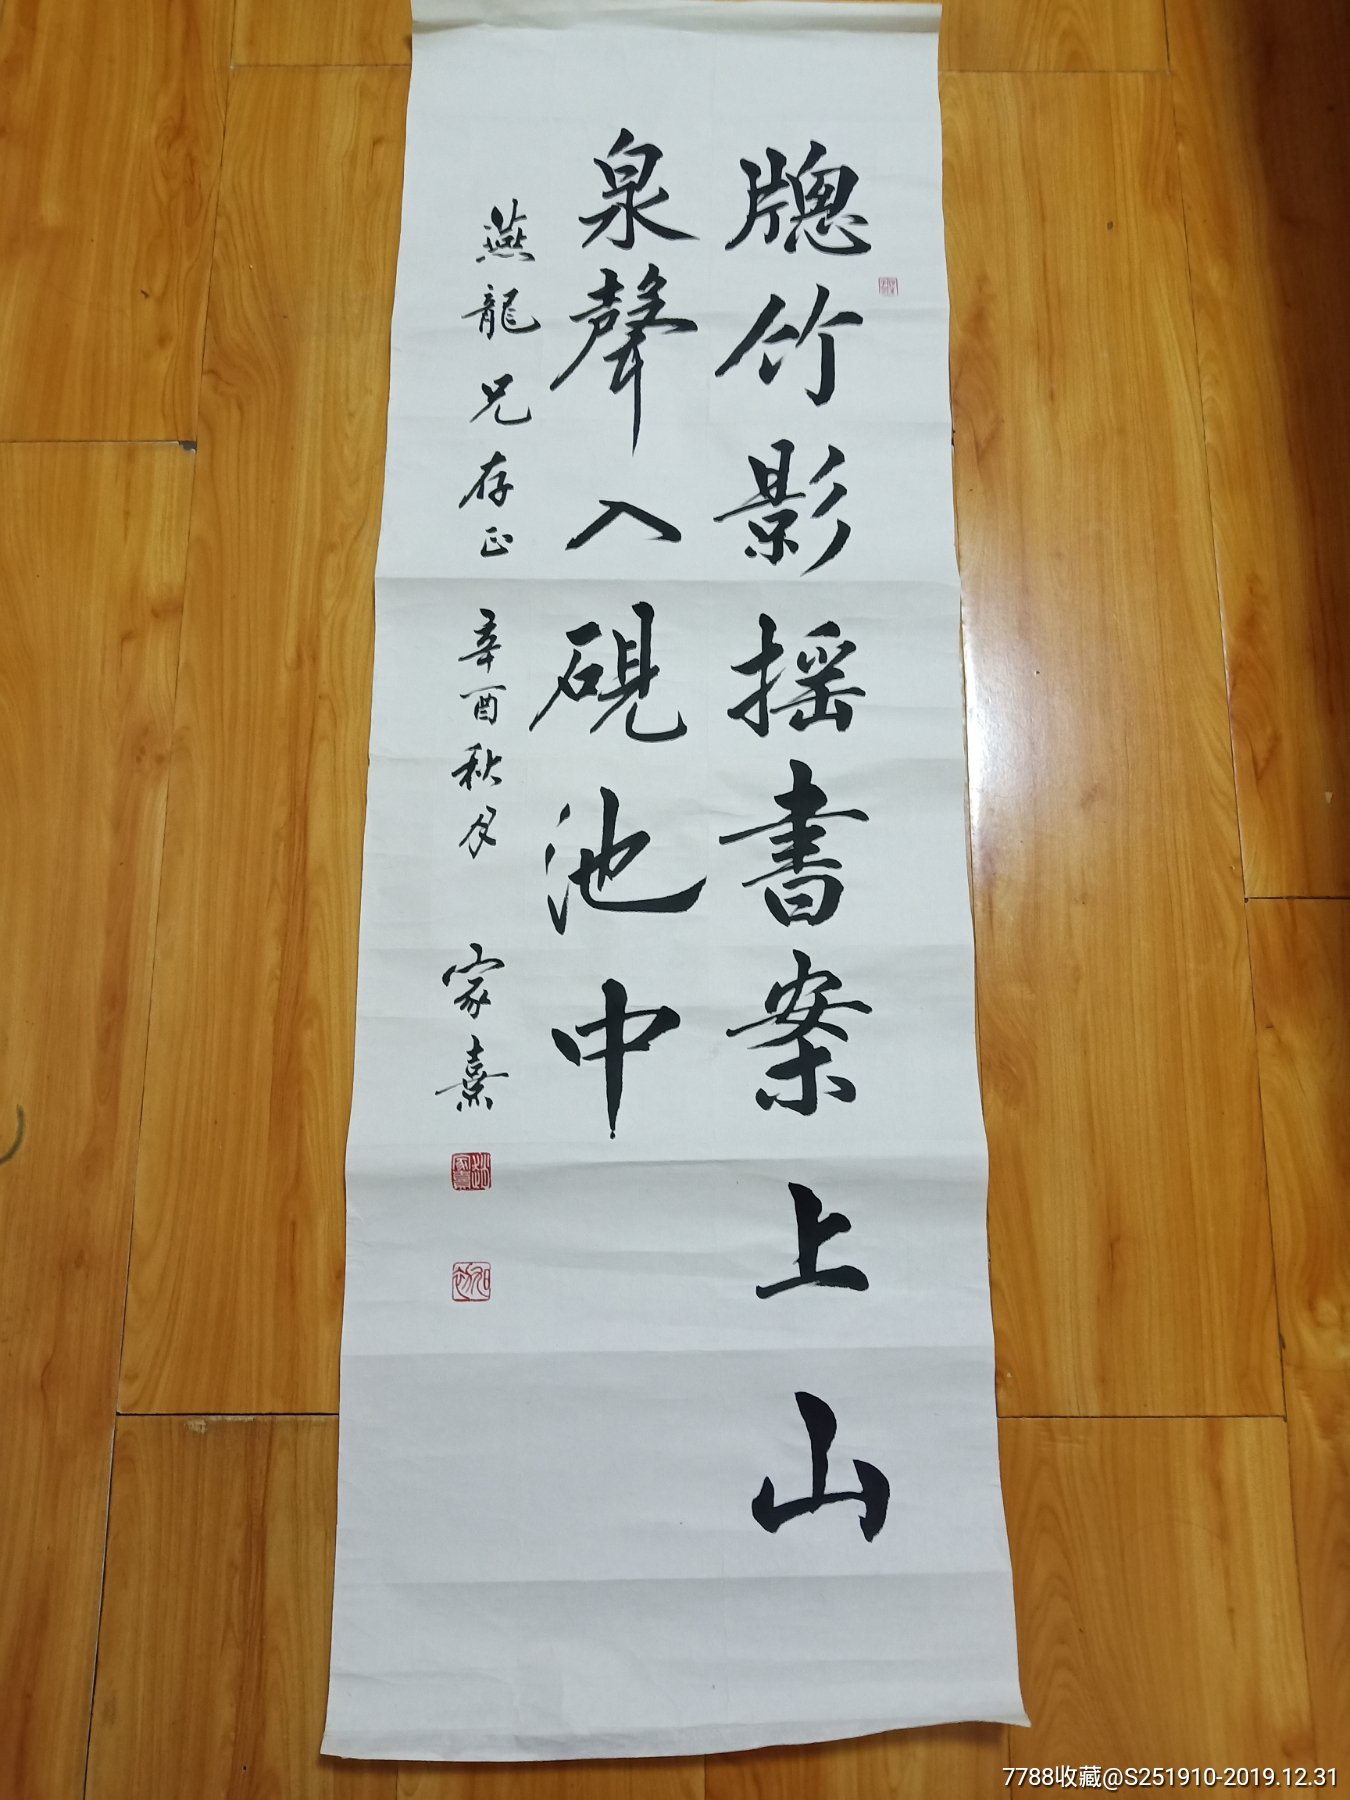 牕竹影摇書案上山
泉聲入硯池中
燕龍兄存正 辛酉秋月 家熹
7788收藏@S251910-2019.12.31